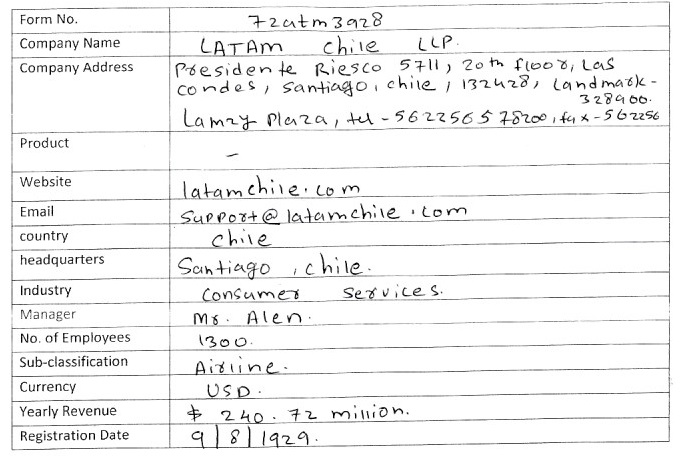 Form No. 72atm3928
Company Name LATAM Chile LLP.
Company Address Presidente Riesco 5711, 20th floor, Las
condes, santiago, chile, 132428, Landmark -
328900.
Lamzy Plaza, tel - 562256578200, fax - 562256
Product –
Website latamchile.com
Email support@latamchile.com
country chile
headquarters Santiago, chile.
Industry Consumer Services.
Manager Mr. Alen.
No. of Employees 1300.
Sub-classification Airline.
Currency USD.
Yearly Revenue $ 240.72 million.
Registration Date 9/8/1929.